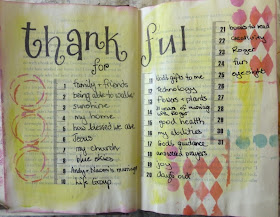 thankful
for
1 family + friends
2 being able to walk
3 sunshine
4 my home
5 how blessed we are
6 Jesus
7 my church
8 blue skies
9 Andy + Naomi's marriage
10 Life Group
11 God's gifts to me
12 technology
13 flowers + plants
14 years of
15 good health
16 my abilities
17 God's guidance
18 answered prayers
19 joy
20 days out
21 books to read
22 creativity
23 Roger
24 fun
25 eyesight